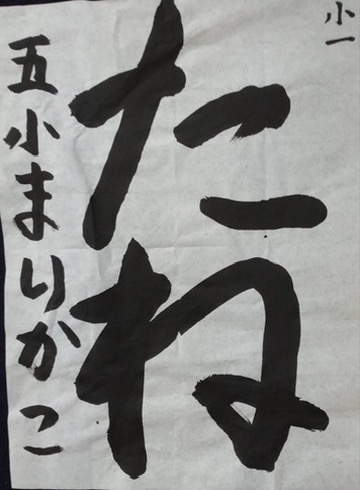 小一
たね
五小まりかこ